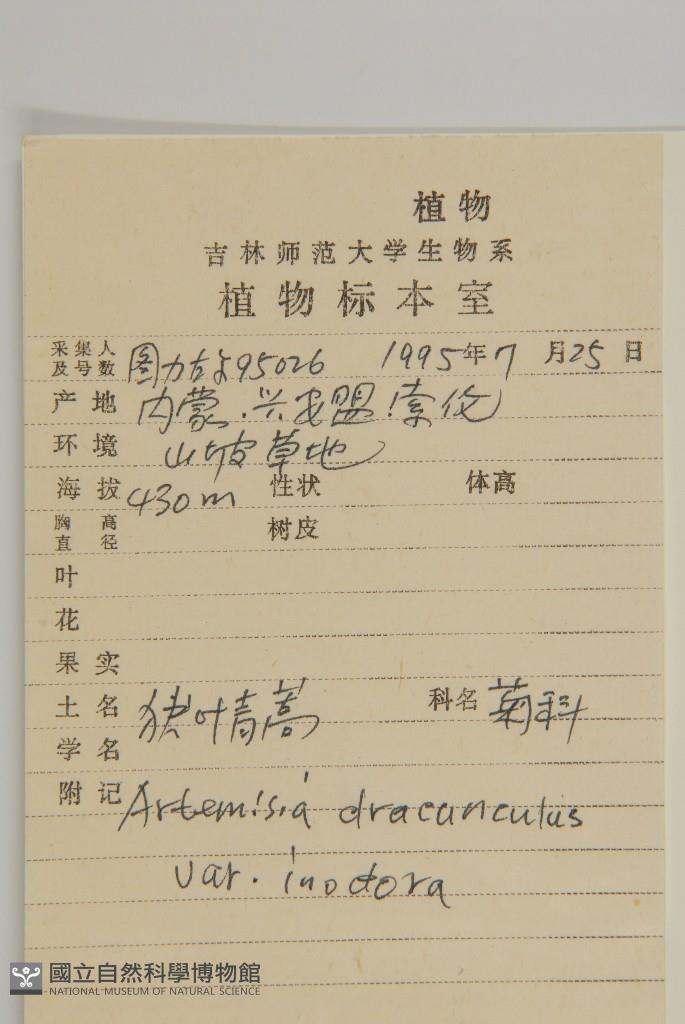 植物
吉林师范大学生物系
植物标本室
采集人及号数 图力古尔95026 1995年7月25日
产地 内蒙.兴安盟.索伦
环境 山坡草地
海拔 430m 性状 体高
胸高直径 树皮
叶
花
果实
土名 狭叶青蒿 科名 菊科
学名
附记 Artemisia dracunculus
var. inodora
國立自然科學博物館
NATIONAL MUSEUM OF NATURAL SCIENCE